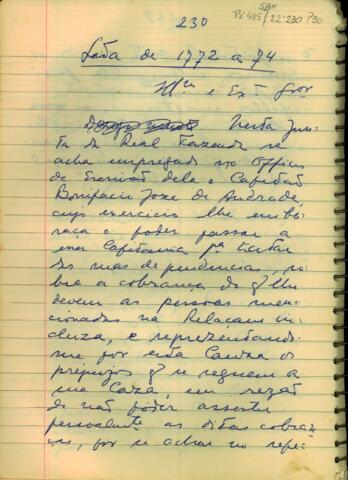 230
SBH
Pi 485 / 22:230 P30
Lata de 1772 a 74
Illmo e Exmo Snor
Nesta Jun-
ta da Real Fazenda se
acha empregado no Officio
de Escrivão dela o Capitão
Bonifacio Joze de Andrade,
cujo exercicio lhe emba-
raça o poder passar a
essa Capitania pa tratar
das suas dependencias, so-
bre a cobrança do q lhe
devem as pessoas men-
cionadas na Relaçam in-
cluza, e reprezentando-
me por esta Cauza os
prejuizos q se seguem a
sua Caza, em rezão
de não poder assestir
pessoalmte as ditas cobran-
ças, por se achar no refe-